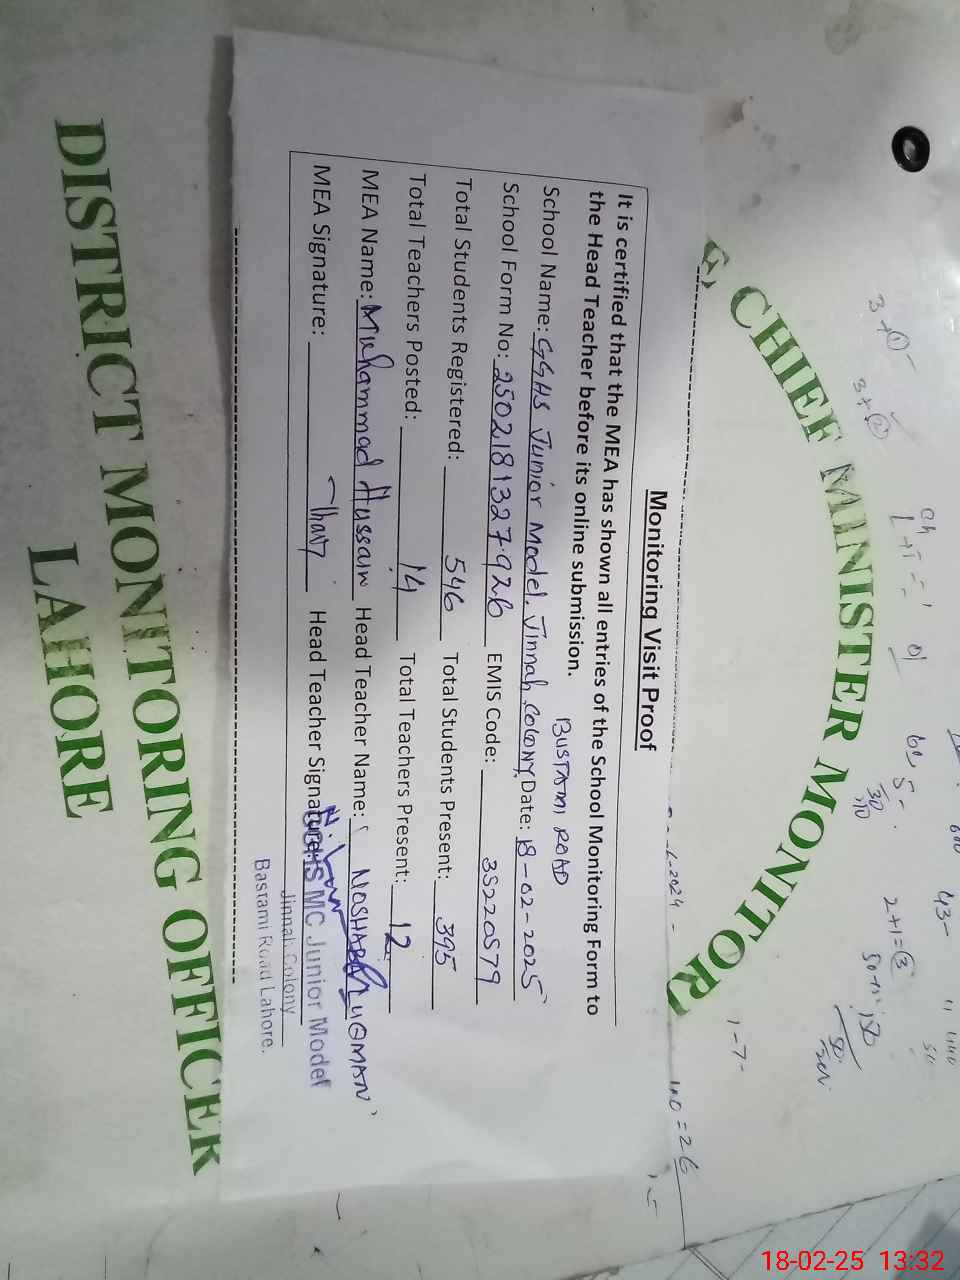 CHIEF MINISTER MONITOR
Monitoring Visit Proof
It is certified that the MEA has shown all entries of the School Monitoring Form to
the Head Teacher before its online submission.
BUSTAMI ROAD
School Name: GGHS Junior Model. Jinnah COLONY Date: 18-02-2025
School Form No: 25021813279 26 EMIS Code: 35220579
Total Students Registered: 546 Total Students Present: 395
Total Teachers Posted: 14 Total Teachers Present: 12
MEA Name: Muhammad Hussain Head Teacher Name: NOSHABA LUQMAN
MEA Signature: Head Teacher Signature:
MC Junior Model
Jinnah Colony
Bastami Road Lahore.
DISTRICT MONITORING OFFICER
LAHORE
3+1
3+2
2+1=3
1-7-
=26
18-02-25 13:32